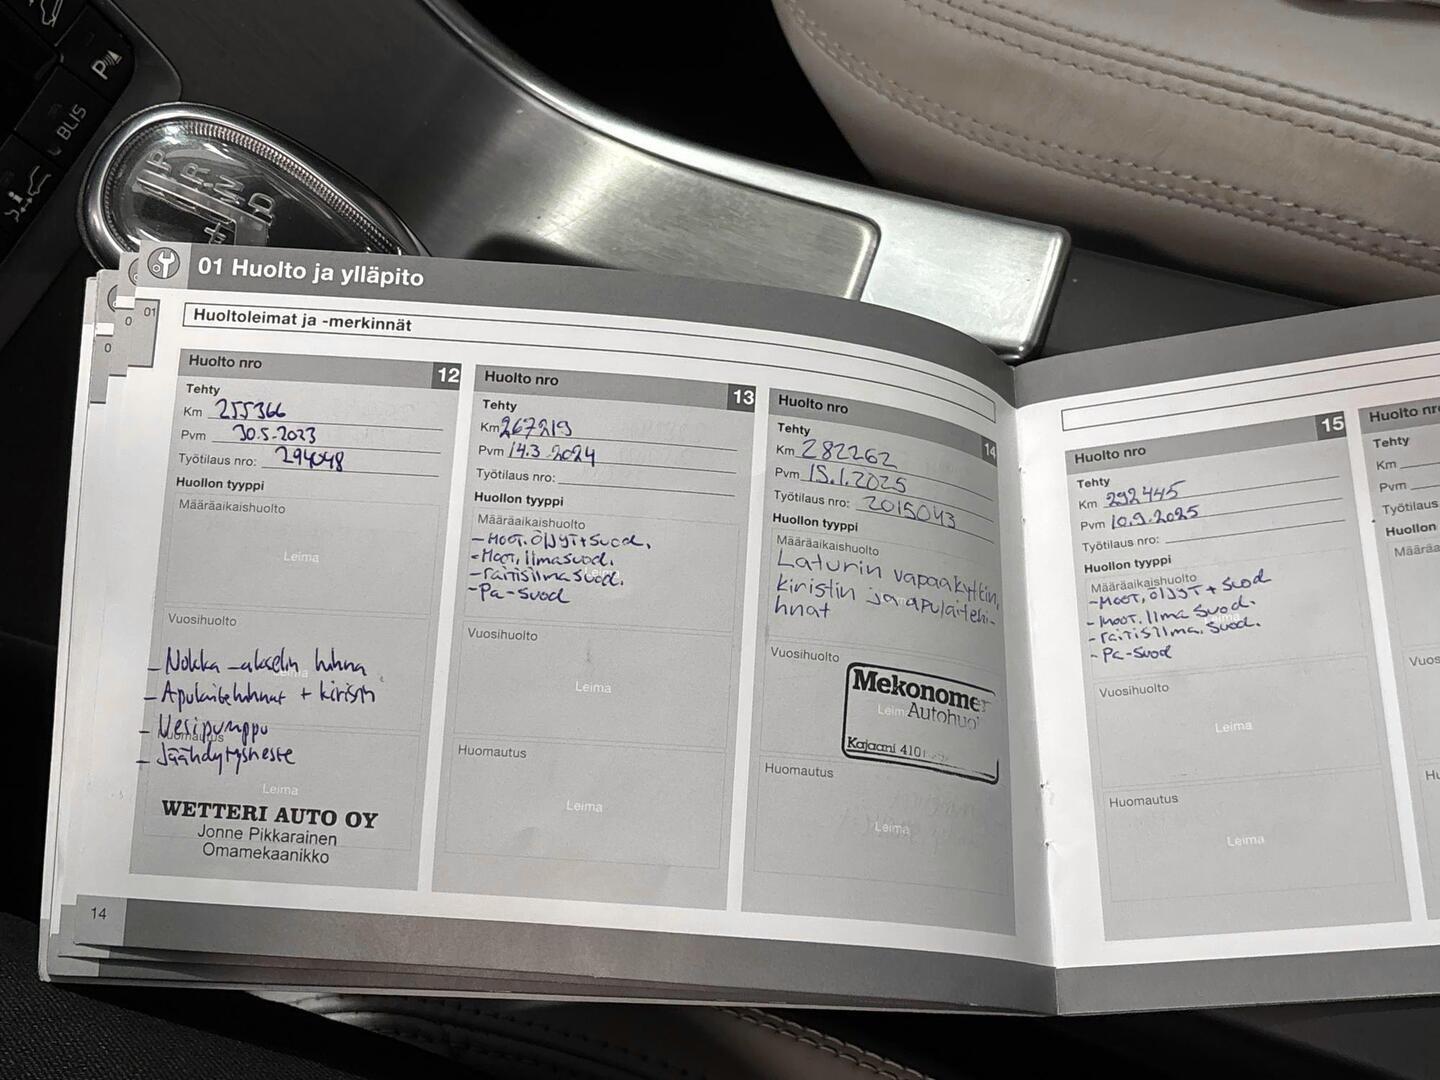 P
BLIS
P
R
N
D
+
01 Huolto ja ylläpito
01
0
0
Huoltoleimat ja -merkinnät
Huolto nro 12
Tehty
Km 255366
Pvm 30.5.2023
Työtilaus nro: 294048
Huollon tyyppi
Määräaikaishuolto
Leima
Vuosihuolto
- Nokka-akselin hihna
Leima
- Apulaitehihnat + kiristin
- Vesipumppu
Huomautus
- Jäähdytysneste
Leima
WETTERI AUTO OY
Jonne Pikkarainen
Omamekaanikko
14
Huolto nro 13
Tehty
Km 267219
Pvm 14.3.2024
Työtilaus nro:
Huollon tyyppi
Määräaikaishuolto
- Moot. Öljyt + suod.
- Moot. ilmasuod.
- raitisilmasuod.
Leima
- Pa-suod
Vuosihuolto
Leima
Huomautus
Leima
Huolto nro 14
Tehty
Km 282262
Pvm 15.1.2025
Työtilaus nro: 2015043
Huollon tyyppi
Määräaikaishuolto
Laturin vapaakytkin,
kiristin ja apulaitehi-
hnat
Vuosihuolto
Mekonomen
Leima
Autohuo
Kajaani 410
Huomautus
Leima
Huolto nro 15
Tehty
Km 292445
Pvm 10.9.2025
Työtilaus nro:
Huollon tyyppi
Määräaikaishuolto
- Moot. öljyt + suod
- moot. ilma suod.
Leima
- raitisilma. suod.
- Pa-suod
Vuosihuolto
Leima
Huomautus
Leima
Huolto nro
Tehty
Km
Pvm
Työtilaus
Huollon
Määrää
Vuos
Hu